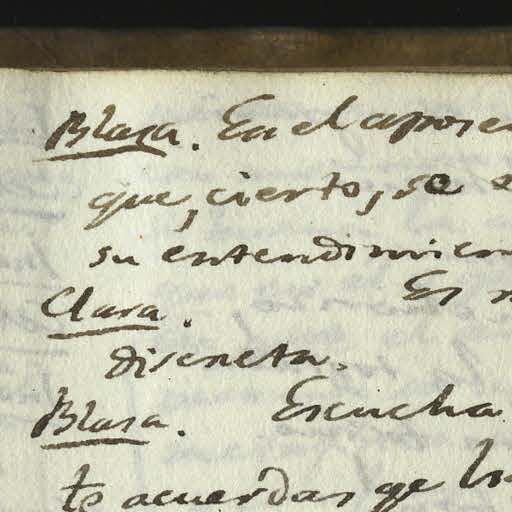 Blasa. En el aposen
que, cierto, se
su entendimien
Clara. Es
discreta.
Blasa. Escucha
te acuerdas qe